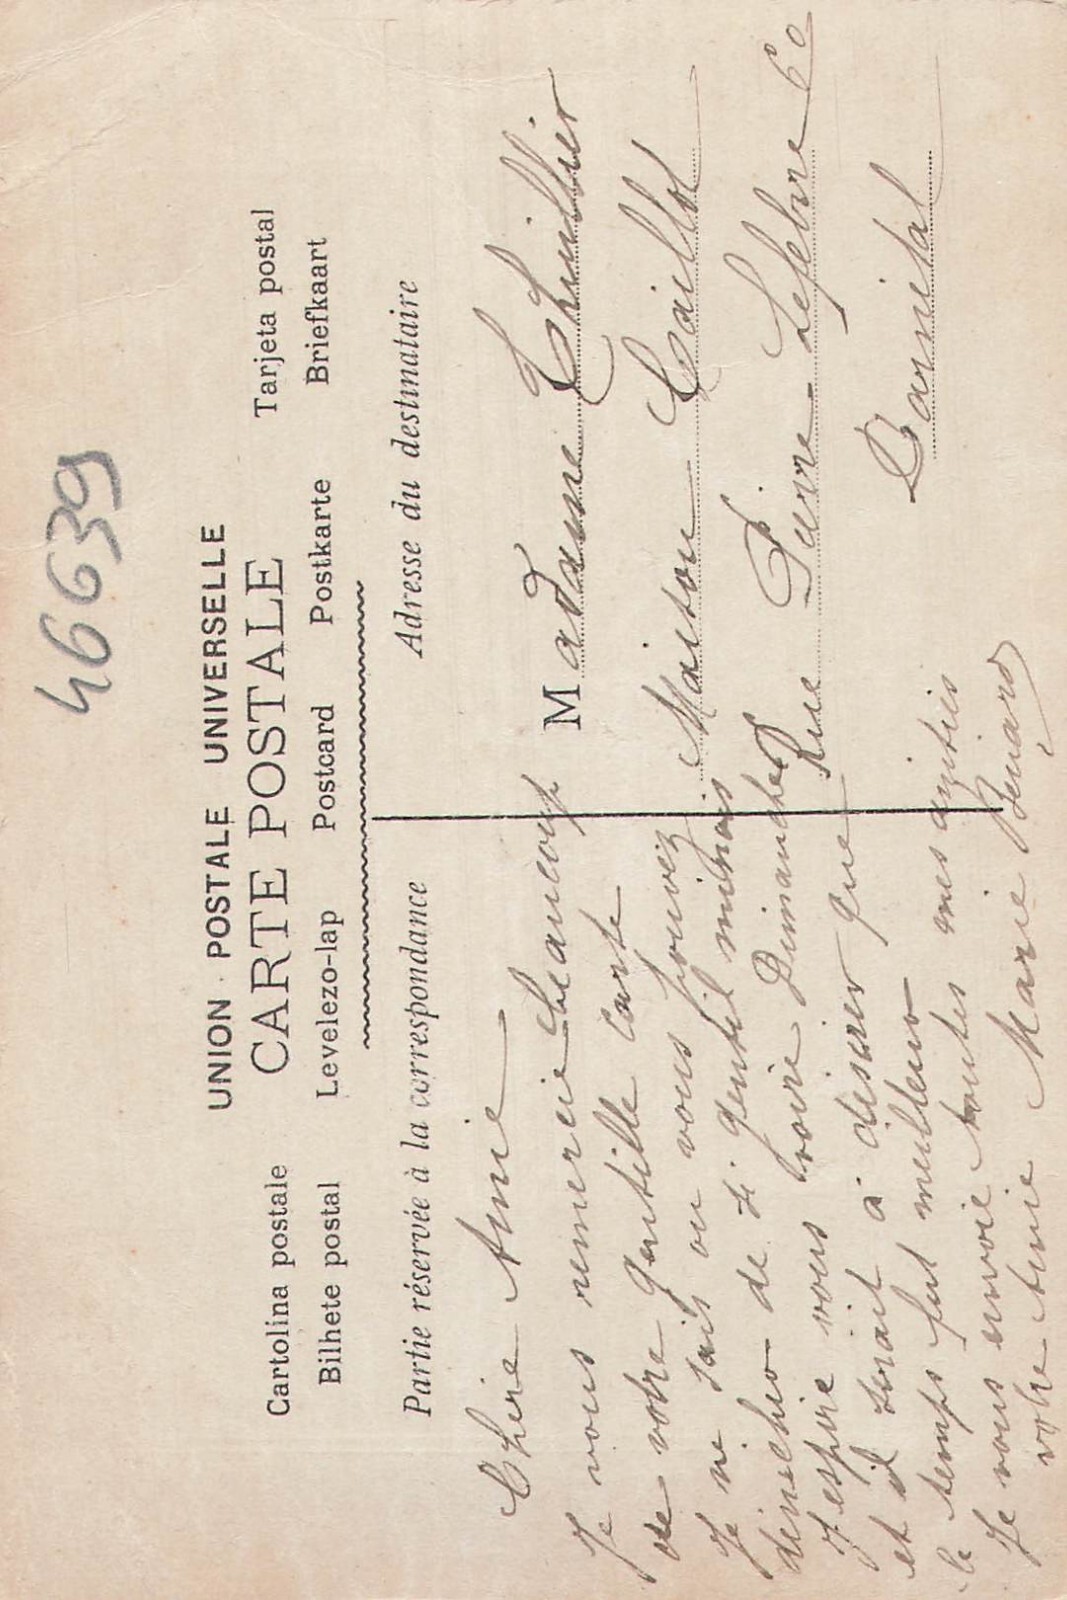 46639
UNION POSTALE UNIVERSELLE
CARTE POSTALE
Cartolina postale
Tarjeta postal
Bilhete postal Levelezo-lap Postcard Postkarte Briefkaart
Partie réservée à la correspondance
Chère Amie
Je vous remercie beaucoup
de votre gentille carte
Je ne sais ou vous pouvez
de si gentil
J espère vous voire Dimanche
et il serait à désirer que
le temps fut meilleur
Je vous envoie toutes mes amitiés
votre Amie Marie Benard
Adresse du destinataire
Madame Thuillier
Maison Caillot
Rue Pierre Lefebvre 60
Darnétal